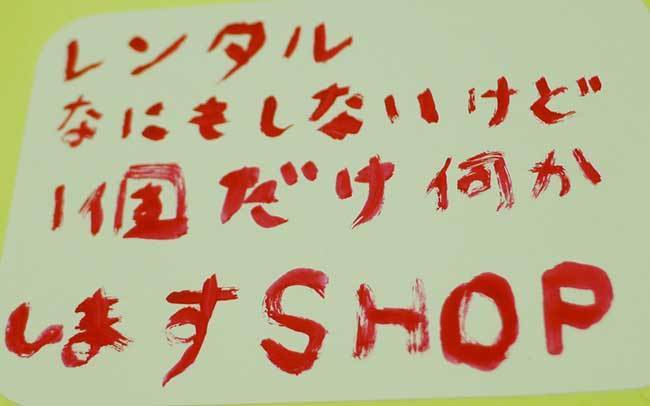 レンタル
なにもしないけど
1個だけ何か
しますSHOP